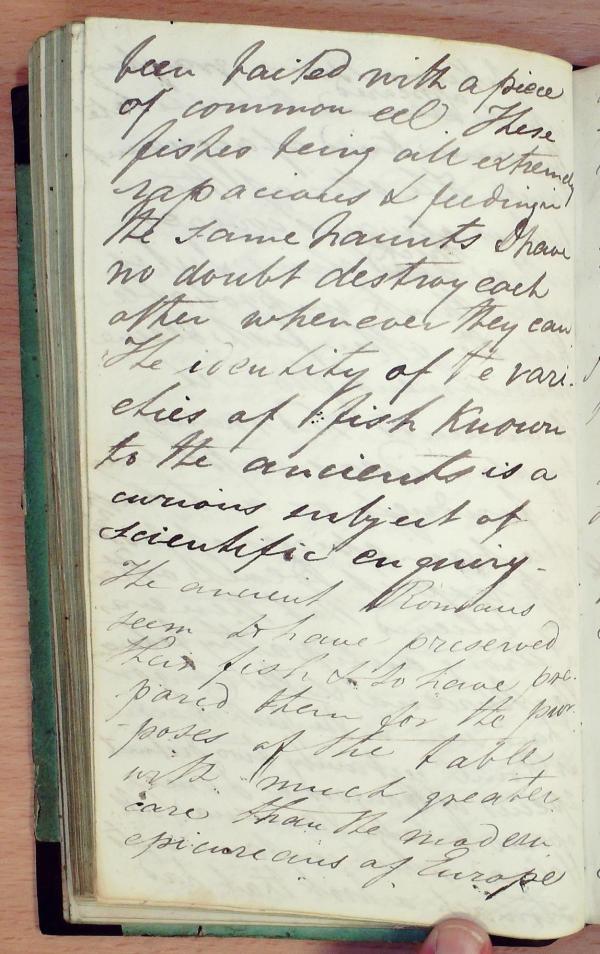 been baited with a piece
of common eel. These
fishes being all extremely
rapacious & feeding in
the same haunts I have
no doubt destroy each
other whenever they can
The identity of the vari-
eties of fish known
to the ancients is a
curious subject of
scientific enquiry.
The ancient Romans
seem to have preserved
their fish & to have pre-
pared them for the pur-
poses of the table
with much greater
care than the modern
epicureans of Europe